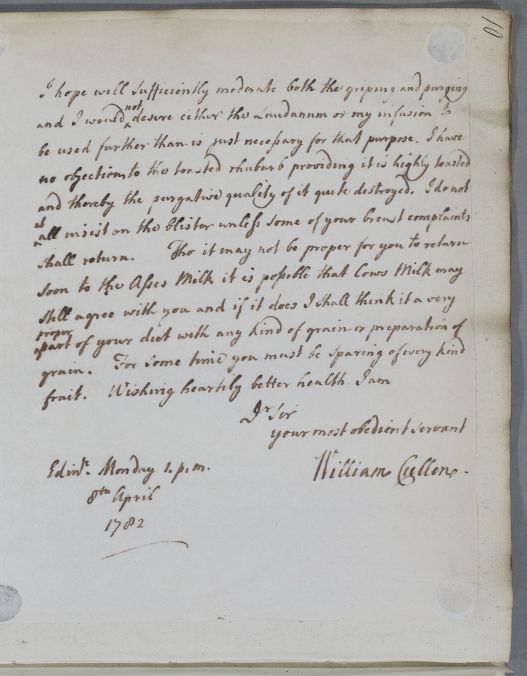 10
I hope well sufficiently moderate both the griping and purging
and I would not desire either the Laudanum or my infusion to
be used further than is just necessary for that purpose. I have
no objections to the toasted rhubarb providing it is highly toasted
and thereby the purgative quality of it quite destroyed. I do not
at all insist on the blister unless some of your breast complaints
shall return. Tho it may not be proper for you to return
soon to the Asses Milk it is possible that Cows Milk may
still agree with you and if it does I shall think it a very
proper part of your diet with any kind of grain or preparation of
grain. For some time you must be sparing of every kind
fruit. Wishing heartily better health I am
Dr Sir
your most obedient servant
William Cullen.
Edinr. Monday 1. p.m.
8th April
1782